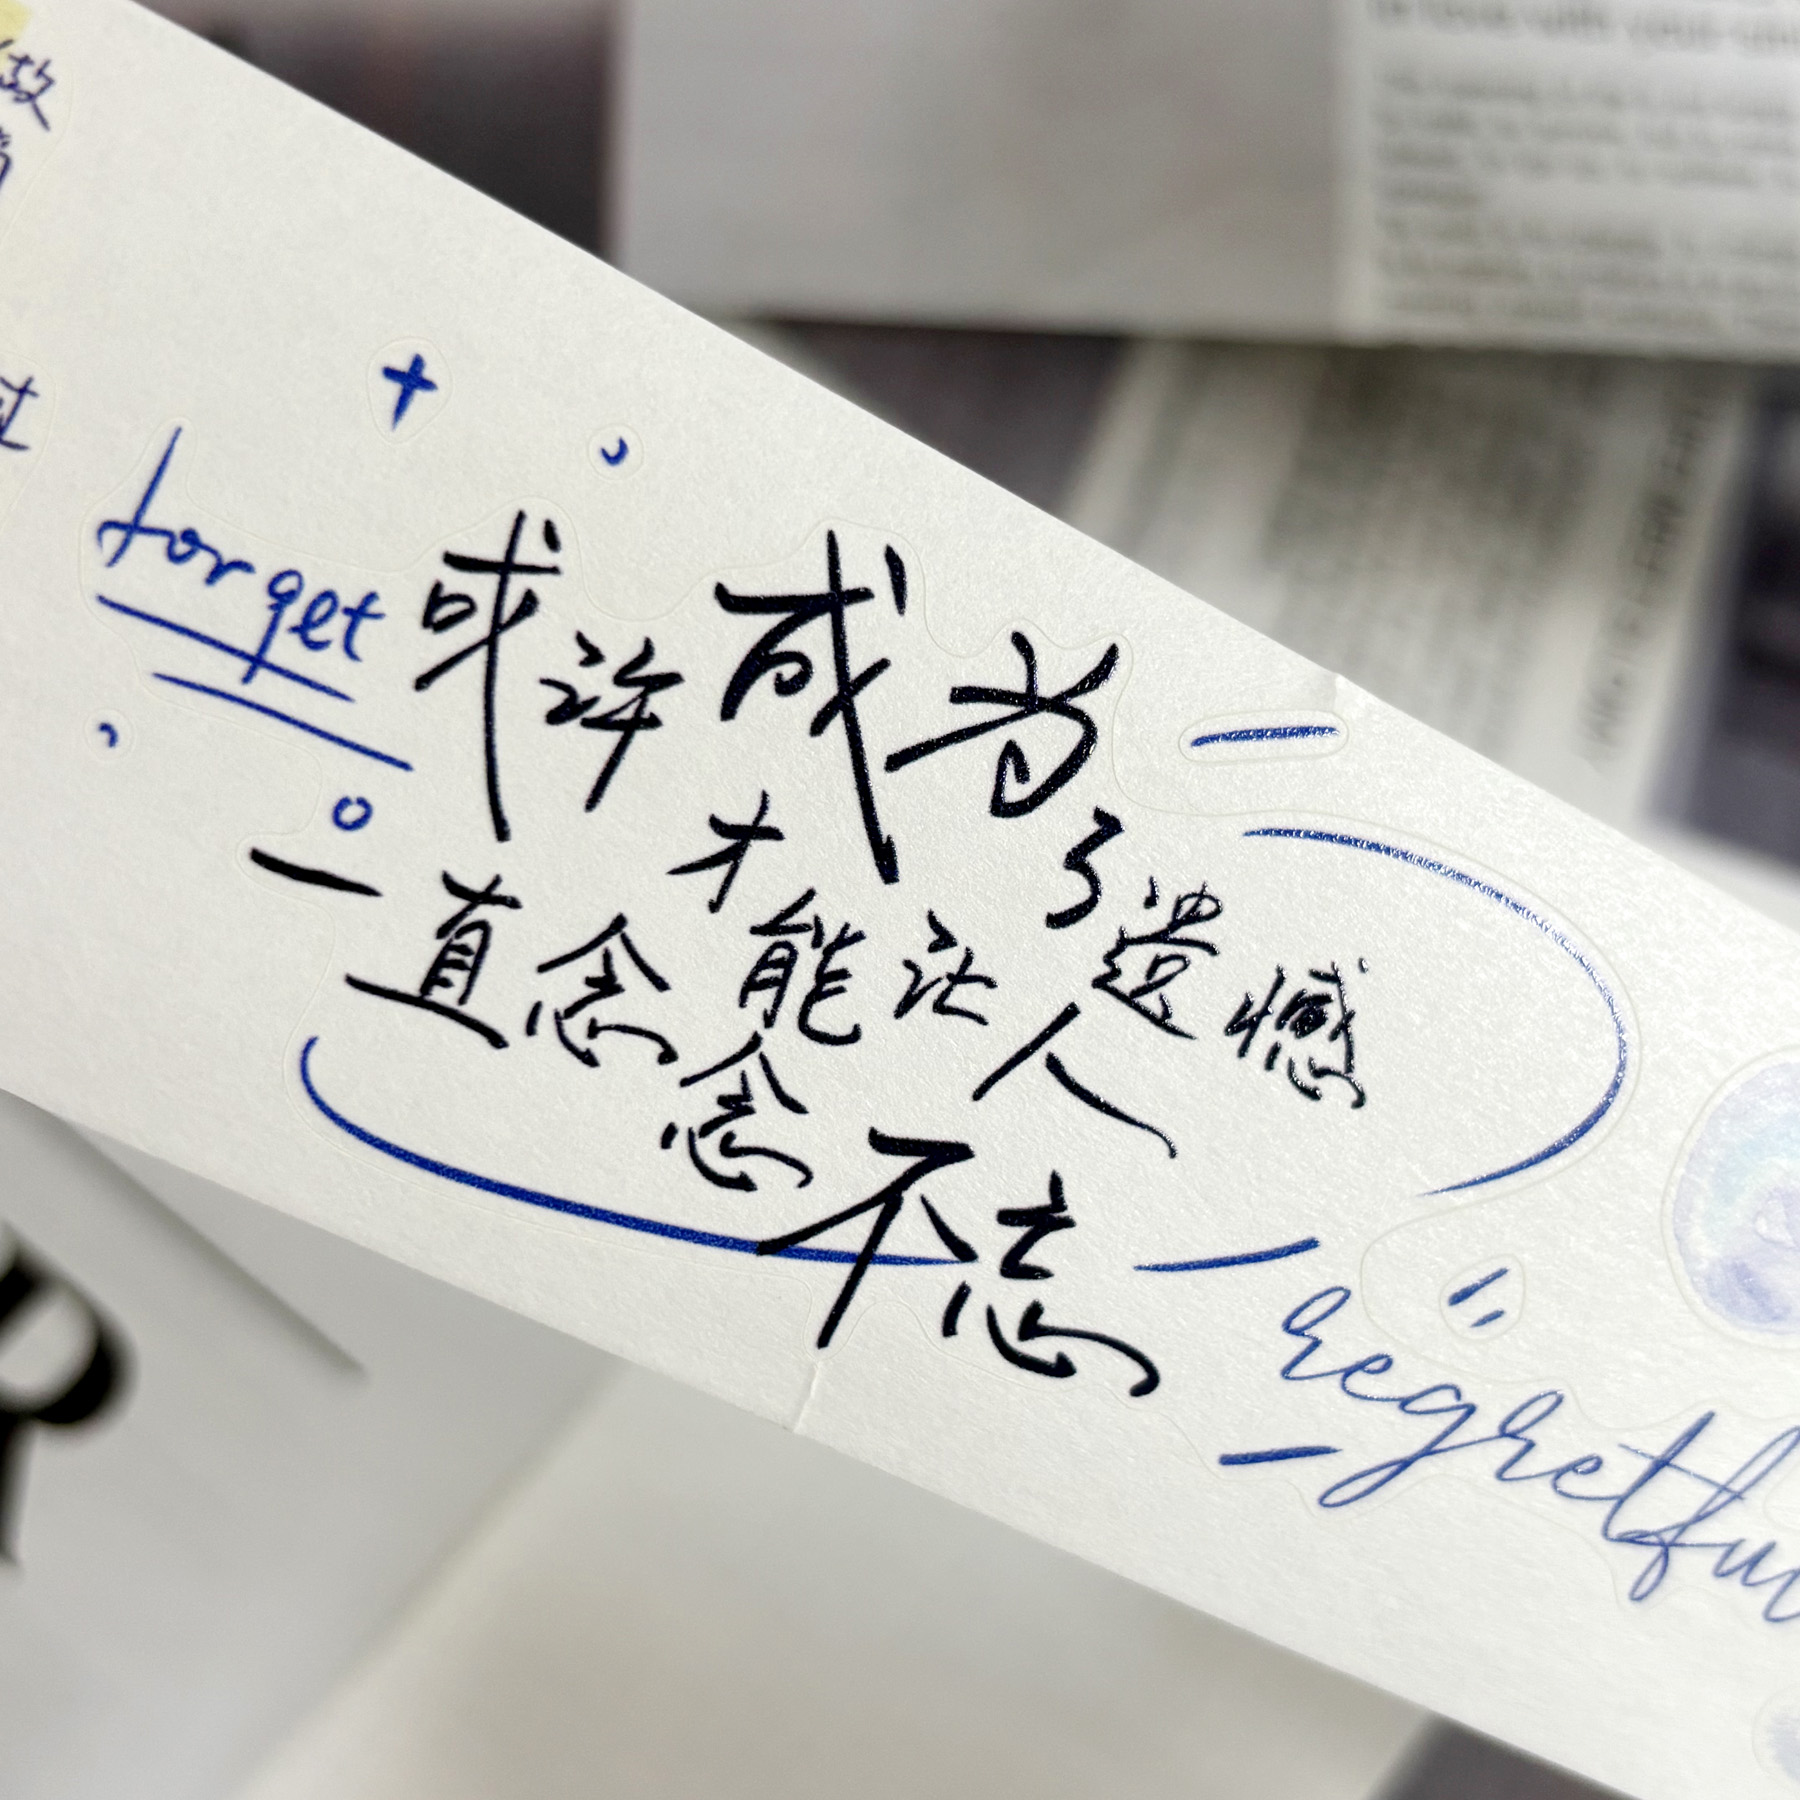 forget
或许成为了遗憾
才能让人
一直念念不忘
regretfu